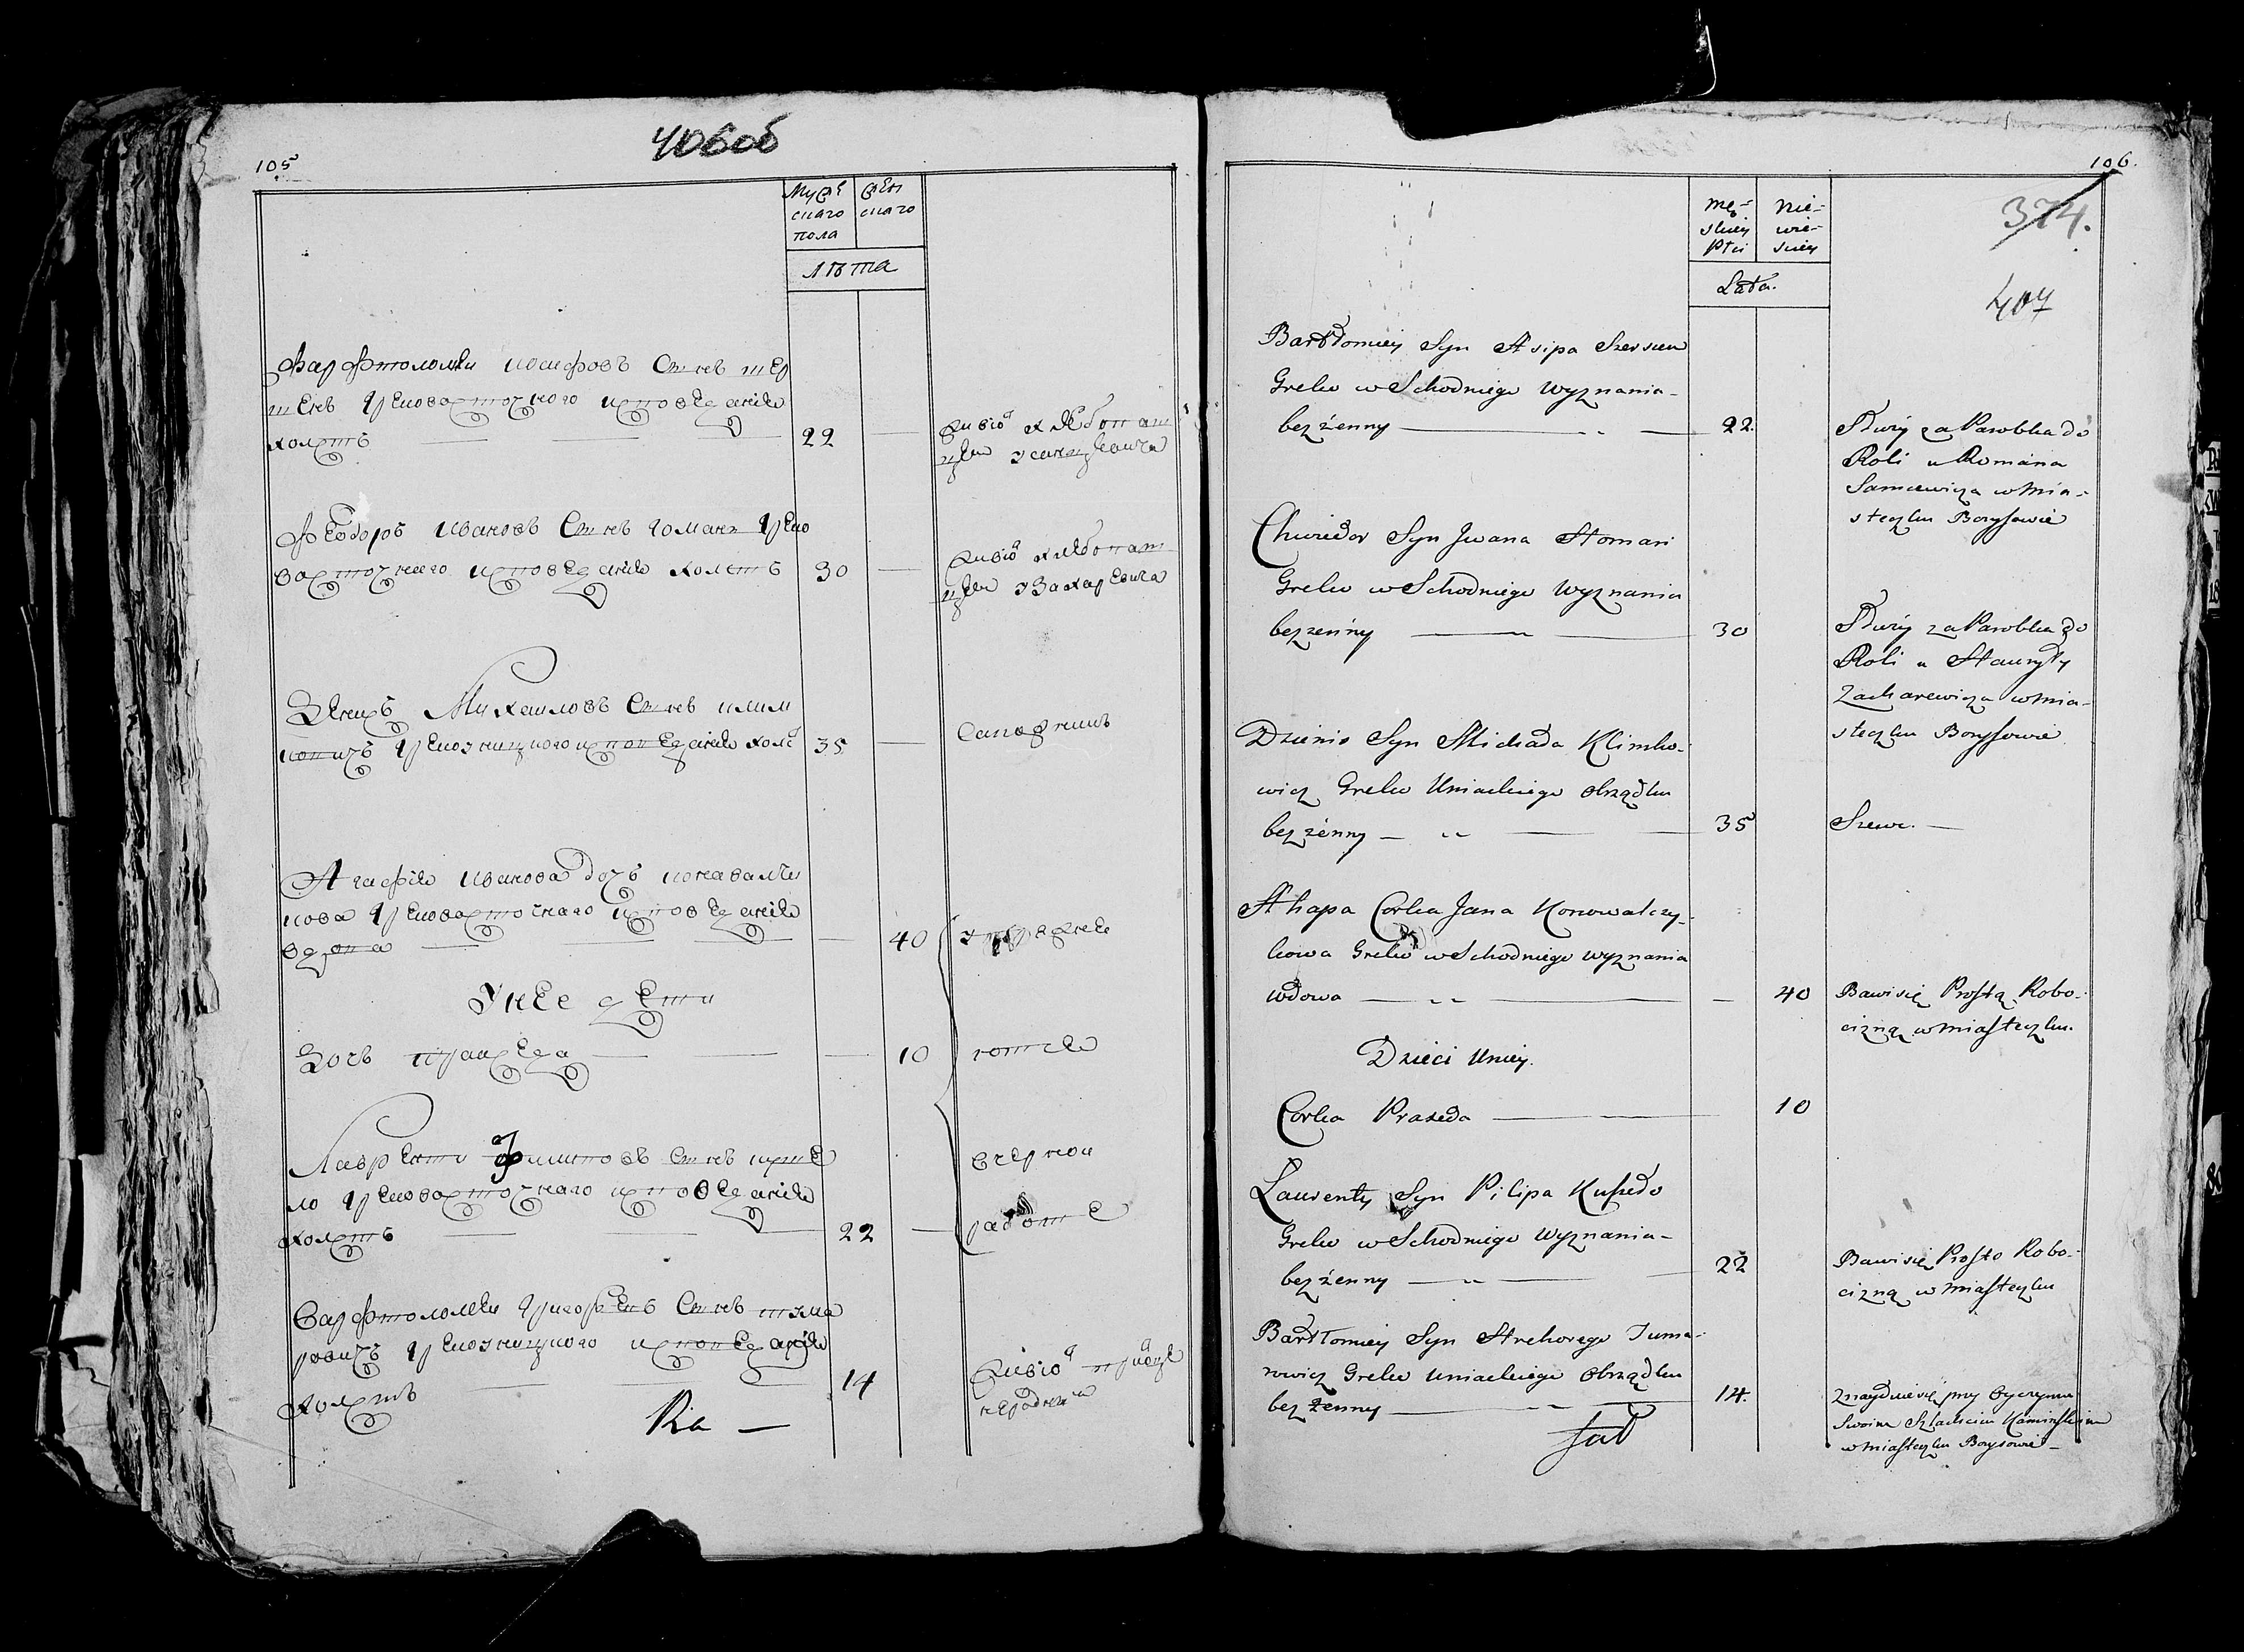 406об
105
Муже
скаго
пола
жен
скаго
лѣта
Варфтоломѣи иосифовъ сынъ шер
шенъ грековосточного исповеданія
холостъ 22
живіо хлѣбопаш
Ѳеодоръ ивановъ сынъ гоманъ греко
восточнаго исповеданія холостъ 30
живіо хлѣбопаш
Захаревича
Михаиловъ сынъ клим
ковичъ грекоуницкого исповеданія холо 35
Сапожникъ
Агафія иванова дочъ коновалчи
кова грековосточнаго исповеданія
вдова 40
упражне
У нее дети
Дочь пракседа 10
Лаврентий Филиповъ сынъ
ло грековосточнаго исповеданія
холостъ 22
ечерной
работе
Варфтоломѣи григорьевъ сынъ тума
ровичъ грекоуницкого исповеданія
холостъ 14
Ria —
106.
374.
407
mę-
skiey
płci
nie-
wie-
skiey
Lata.
Bartłomiey Syn Asipa Szerszen
Greko wSchodniego Wyznania-
bezżenny 22.
Służy za Parobka do
Roli u Romana
Samcewicza w Mia-
steczku Borysowie
Chwiedor Syn Jwana Homan
Greko wSchodniego Wyznania
bezżenny 30
Służy za Parobka do
Roli u Hauryły
Zacharewicza w Mia-
steczku Borysowie
Dzienis Syn Michała Klimko-
wicz Greko Uniackiego Obrządku
bezżenny 35
Szewc.
Ahapa Corka Jana Konowalczy-
kowa Greko wSchodniego wyznania
wdowa 40
Bawi się Prostą Robo-
cizną w Miasteczku.
Dzieci Uniey.
Corka Praxeda 10
Laurenty Syn Pilipa Kuszeło
Greko wSchodniego Wyznania-
bezżenny 22
Bawi się Prosto Robo-
cizną w Miasteczku
Bartłomiey Syn Hrehorego Tuma-
rowicz Greko Uniackiego Obrządku
bezżenny 14.
Znayduie się przy Oyczymie
Swoim Szlachcicu Kamińskim
w Miasteczku Borysowie-